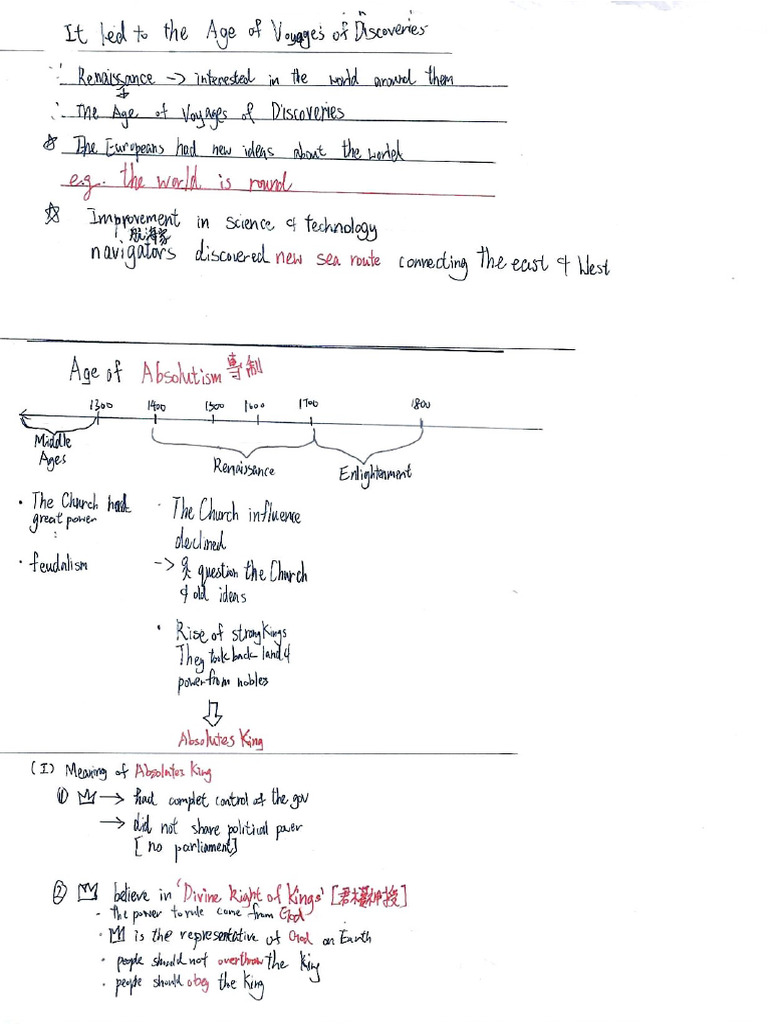 It led to the Age of Voyages of Discoveries
∵ Renaissance -> interested in the world around them
∴ The Age of Voyages of Discoveries
☆ The Europeans had new ideas about the world
e.g. the world is round
☆ Improvement in science & technology
航海家
navigators discovered new sea route connecting the east & West
Age of Absolutism 專制
1300 1400 1500 1600 1700 1800
Middle Ages
Renaissance
Enlightenment
• The Church had
great power
:
• feudalism
• The Church influence
declined
-> question the Church
& old ideas
• Rise of strong kings
They took back land &
power from nobles
⇩
Absolutes King
(I) Meaning of Absolutes King
① → had complet control of the gov
→ did not share political power
[no parliament]
② believe in 'Divine Right of Kings' [君權神授]
- the power to rule came from God
• is the representative of God on Earth
• people should not overthrow the king
• people should obey the King